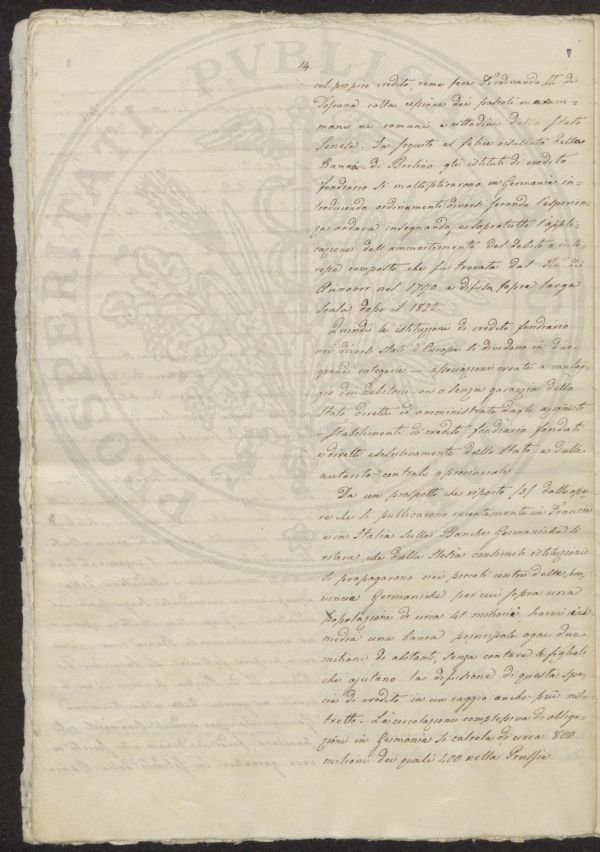 14.
col proprio credito, come fece Ferdinando II di
Toscana colla cessione dei pascoli maremm-
mani ai comuni e cittadini dello Stato
Senese. In seguito ai felici risultati della
Banca di Berlino gli istituti di credito
fondiario si moltiplicarono in Germania in-
troducendo ordinamenti diversi secondo l'esperien-
za andava insegnando, e sopratutto l'appli-
cazione dell'ammortimento del debito a inte-
resse composto che fu trovata dal Re di
Annover nel 1790 e difusa sopra larga
scala dopo il 1822.
Quindi le istituzioni di credito fondiario
nei diversi Stati d'Europa si dividono in due
grandi categorie — associazioni create a vantag-
gio dei debitori con o senza garanzia dello
Stato dirette ed amministrate dagli azionisti
— stabilimenti di credito fondiario fondati
e diretti esclusivamente dallo Stato e dalle
autorità centrali o provinciali
Da un prospetto che riporto (3) dalle ope-
re che si publicarono recentemente in Francia
e in Italia sulle Banche Germaniche si
rileva che dalla Slesia consimili istituzioni
si propagarono nei piccoli centri delle pro-
vincie Germaniche per cui sopra una
popolazione di circa 41 milioni havvi in
media una banca principale ogni due
milioni di abitanti, senza contare le figliali
che ajutano la difusione di questa spe-
cie di credito in un raggio anche più ris-
tretto. La circolazione complessiva di obliga-
zioni in Germania si calcola di circa 800
milioni dei quali 400 nella Prussia
PROSPERITATI PVBLI